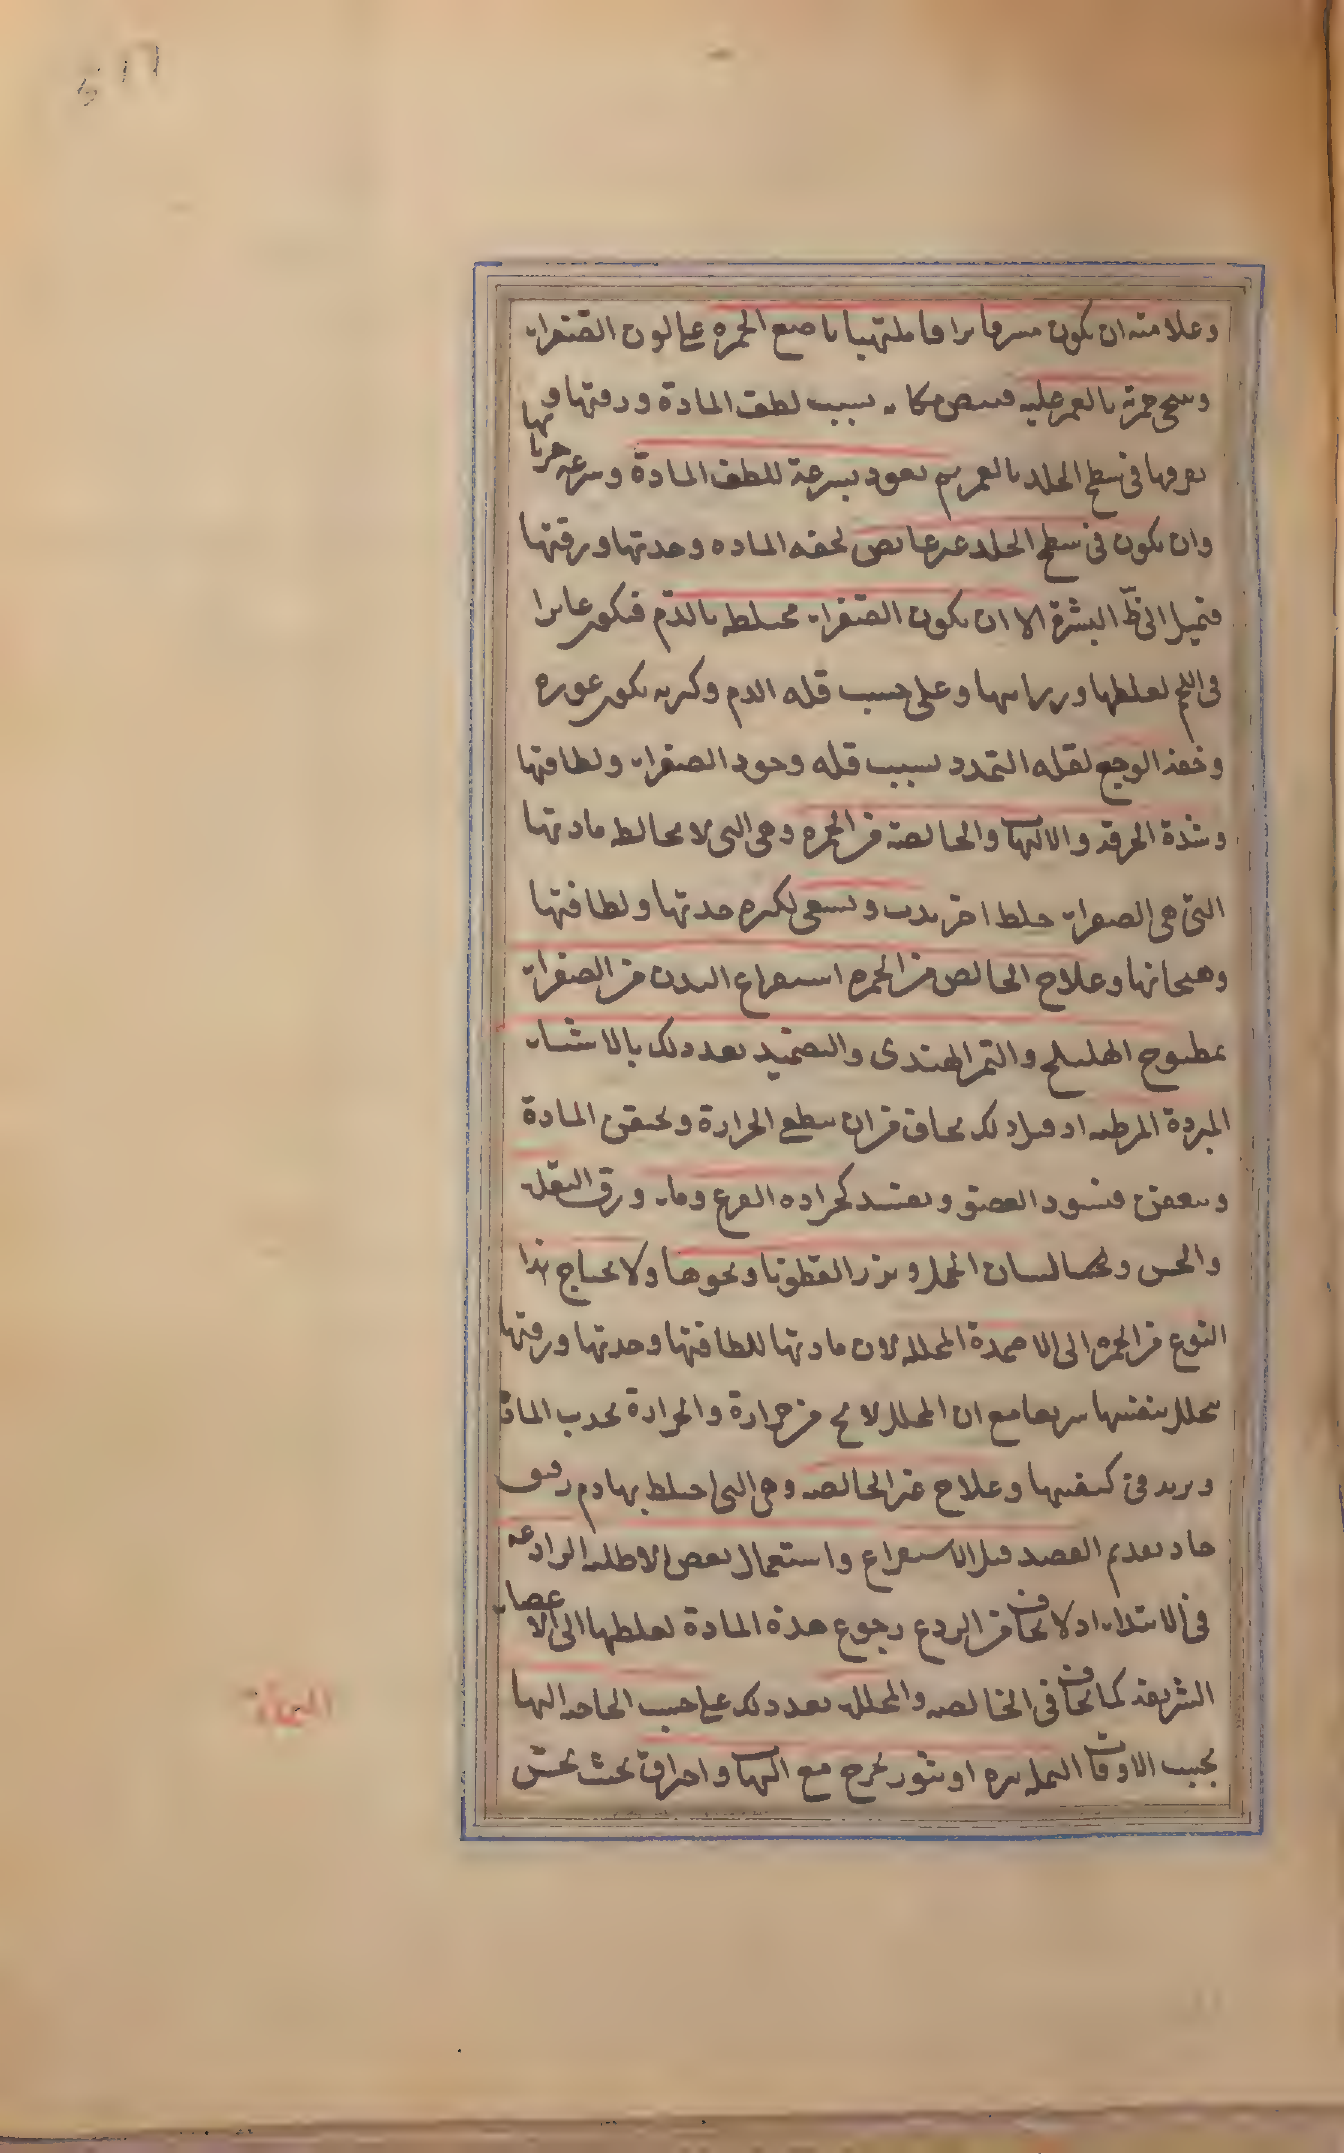 وعلامته ان يكون مشرقا براقا ملتهبا ناصع الحمره على لون الصفراء
وينمحى حمرته بالغمز عليه فيبيض مكانه بسبب لطف المادة ورقتها و
تفرقها فى سطح الجلد بالغمز ثم يعود بسرعة للطف المادة وسرعه حركتها
وان يكون فى سطح الجلد غير غايص لخفه الماده وحدتها ورقتها
فتميل الى ظ البشرة الا ان يكون الصفراء مختلط بالدم فيكون غايرا
فى اللحم لغلظها وعلى حسب قله الدم وكثرته يكون غوره
وخفه الوجع لقله التمدد بسبب قله وجود الصفراء ولطافتها
وشدة الحرقه والالتهاب والخالصة من الحمره وهى التى لا يخالط مادتها
التى هى الصفراء خلط اخر يدب ويسعى لكثره حدتها ولطافتها
وهيجانها وعلاج الخالص من الحمره استفراغ البدن من الصفراء
بمطبوخ الهليلج والتمر الهندى والتضميد بعد ذلك بالاشياء
المبردة المرطبه اذ قبل ذلك يخاف من ان ينطفى الحرارة ويحتقن المادة
ويتعفن فيسود العضو ويفسد كجراده القرع وماء ورق البقله
والخس وعصا لسان الحمل وبزر القطونا ونحوها ولا يحتاج هذا
النوع من الحمره الى الاضمدة المحلله لان مادتها للطافتها وحدتها ورقتها
يتحلل بنفسها سريعا مع ان المحلل لا يخ من حرارة والحرارة يجذب المادة
ويزيد فى كيفيتها وعلاج غير الخالصه وهى التى اختلط بها دم رقيق
حاد تقديم الفصد قبل الاستفراغ واستعمال بعض الاطليه الرادعه
فى الابتداء اذ لا يخاف من الردع رجوع هذه المادة لغلظها الى الاعضاء
الشريفه كما يخاف فى الخالصه والمحلله بعد ذلك على حسب الحاجه اليها
بحسب الاوقات النمله بثره او بثور يخرج مع التهاب واحراق بحيث يحس
النملة